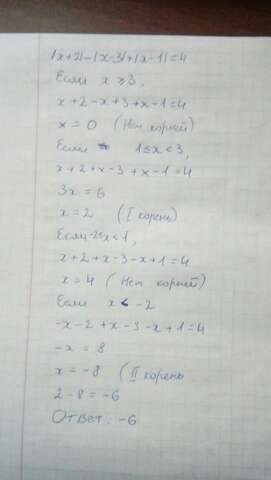 |x+2|-|x-3|+|x-1|=4
Если x ≥3,
x+2-x+3+x-1=4
x=0 (Нет корней)
Если 1≤x<3,
x+2+x-3+x-1=4
3x=6
x=2 (I корень)
Если -2≤x<1,
x+2+x-3-x+1=4
x=4 (Нет корней)
Если x < -2
-x-2+x-3-x+1=4
-x=8
x=-8 (II корень
2-8=-6
Ответ: -6